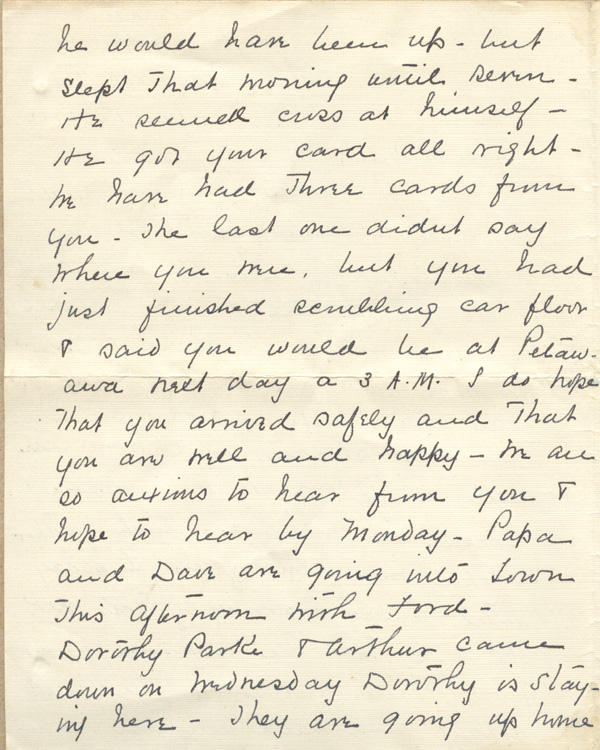 he would have been up - but
slept That morning until seven -
He seemed cross at himself -
He got your card all right -
We have had Three cards from
you - The last one didnt say
where you were, but you had
just finished scrubbing car floor
& said you would be at Petaw-
awa next day a 3 A.M. I do hope
That you arrived safely and That
you are well and happy - We are
so anxious to hear from you &
hope to hear by Monday - Papa
and Dave are going into Town
This afternoon with Ford -
Dorothy Parke & Arthur came
down on Wednesday Dorothy is stay-
ing here - They are going up home